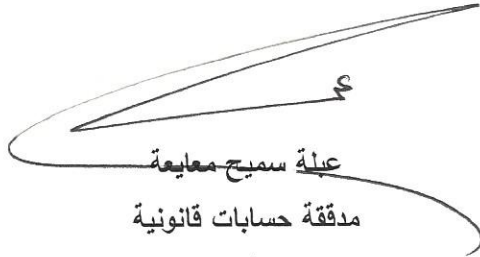 عبلة سميح معايعة
مدققة حسابات قانونية